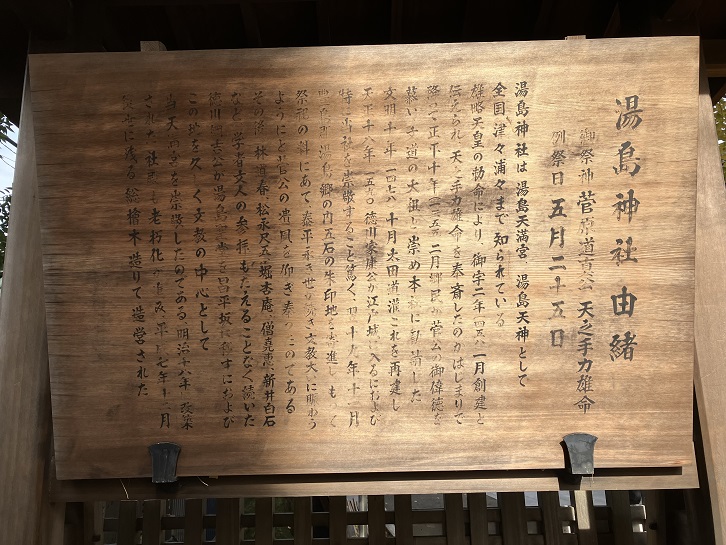 湯島神社由緒
御祭神 菅原道真公 天之手力雄命
例祭日 五月二十五日
湯島神社は 湯島天満宮 湯島天神として
全国津々浦々まで知られている
雄略天皇の勅命により、御宇二年 四五八 一月創建と
伝えられ 天之手力雄命を奉斎したのがはじまりで
降って正平十年 一三五五 二月郷民が菅公の御偉徳を
慕い 文道の大祖と崇め本社に勧請した
文明十年 一四七八 十月 太田道灌これを再建し
天正十八年 一五九〇 徳川家康公が江戸城に入るにおよび
特に当社を崇敬すること篤く、翌十九年十一月
湯島郷の内五石の朱印地を寄進し もって
祭祀の料にあて 泰平永き世が続き 文教大いに賑わう
ようにと菅公の遺風を仰ぎ奉ったのである
その後 林道春 松永尺五 堀杏庵 僧堯恵 新井白石
など 学者文人の参拝もたえることなく続いた
徳川綱吉公が湯島聖堂を昌平坂に移すにおよび
この地を久しく文教の中心として
当天満宮を崇敬したのである 明治十八年 改築
された社殿も老朽化が進み 平成七年十二月
後世に残る総檜木造りで造営された